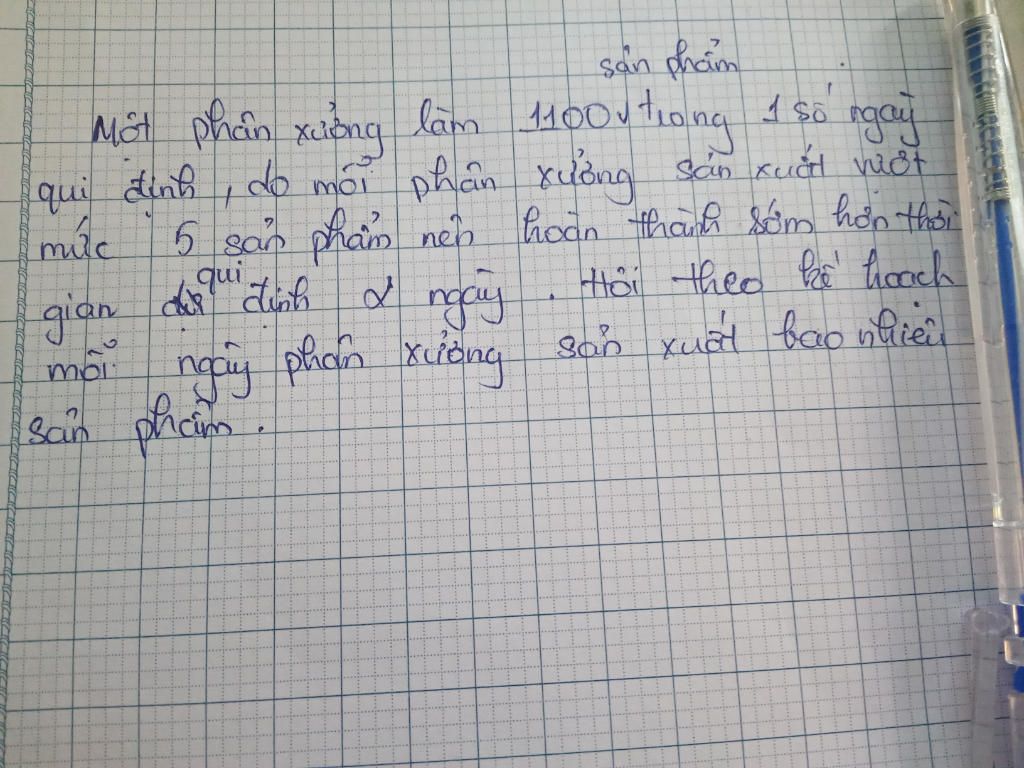 sản phẩm
Một phân xưởng làm 1100 √ trong 1 số ngày
qui định, do mỗi phân xưởng sản xuất vượt
mức 5 sản phẩm nên hoàn thành sớm hơn thời
qui
gian định 2 ngày. Hỏi theo kế hoạch
mỗi ngày phân xưởng sản xuất bao nhiêu
sản phẩm.